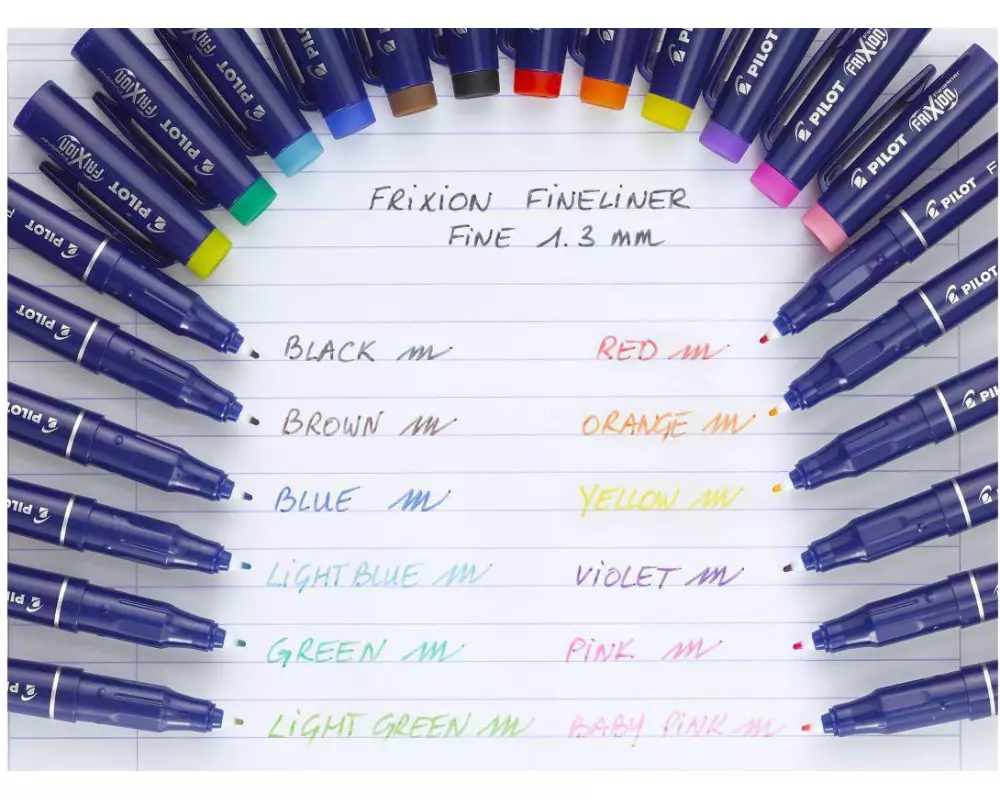 PILOT FRIXION
PILOT FRIXION
PILOT FRIXION
PILOT
PILOT
PILOT FRIXION
PILOT FRIXION
FRIXION FINELINER
FINE 1.3 mm
BLACK
RED
BROWN
ORANGE
BLUE
YELLOW
LIGHT BLUE
VIOLET
GREEN
PINK
LIGHT GREEN
BABY PINK
PILOT
PILOT
PILOT
PILOT
PILOT